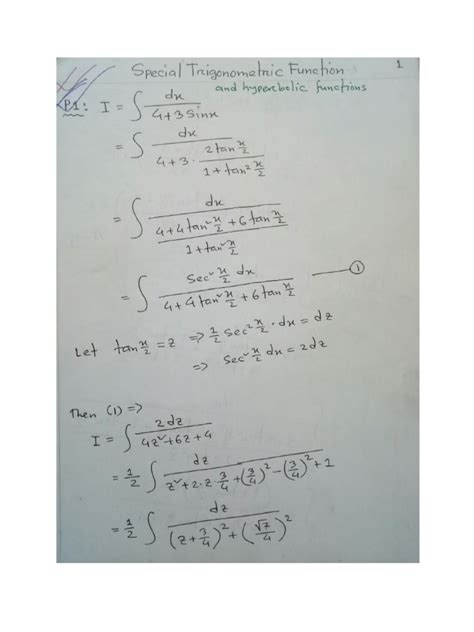 Special Trigonometric Function 1
and hyperbolic functions
P1: I = ∫ dx / (4+3 sinx)
= ∫ dx / (4+3 · (2 tan x/2) / (1+tan² x/2))
= ∫ dx / ((4+4 tan² x/2 + 6 tan x/2) / (1+tan² x/2))
= ∫ sec² x/2 dx / (4+4 tan² x/2 + 6 tan x/2) —— ①
Let tan x/2 = z ⇒ 1/2 sec² x/2 · dx = dz
⇒ sec² x/2 dx = 2dz
Then (1) =>
I = ∫ 2dz / (4z²+6z+4)
= 1/2 ∫ dz / (z²+2·z·3/4+(3/4)²-(3/4)²+1)
= 1/2 ∫ dz / ((z+3/4)²+(√7/4)²)